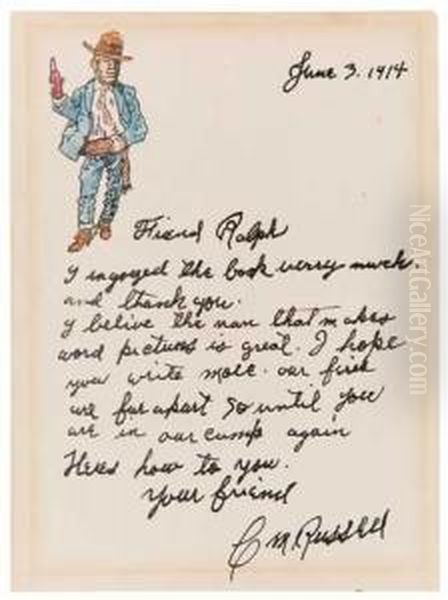 June 3. 1914
Friend Ralph
I ingoyed the book verry much
and thank you.
I belive the man that makes
word pictures is great. I hope
you write more. our fires
are far apart so until you
are in our camp again
Heres how to you.
Your friend
C M Russell
NiceArtGallery.com